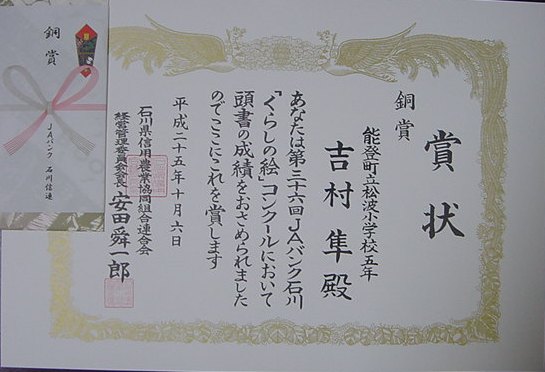 賞状
銅賞
能登町立松波小学校五年
吉村隼殿
あなたは第三十六回JAバンク石川
「くらしの絵」コンクールにおいて
頭書の成績をおさめられました
のでここにこれを賞します
平成二十五年十月六日
石川県信用農業協同組合連合会
経営管理委員会会長 安田舜一郎
銅賞
JAバンク 石川信連